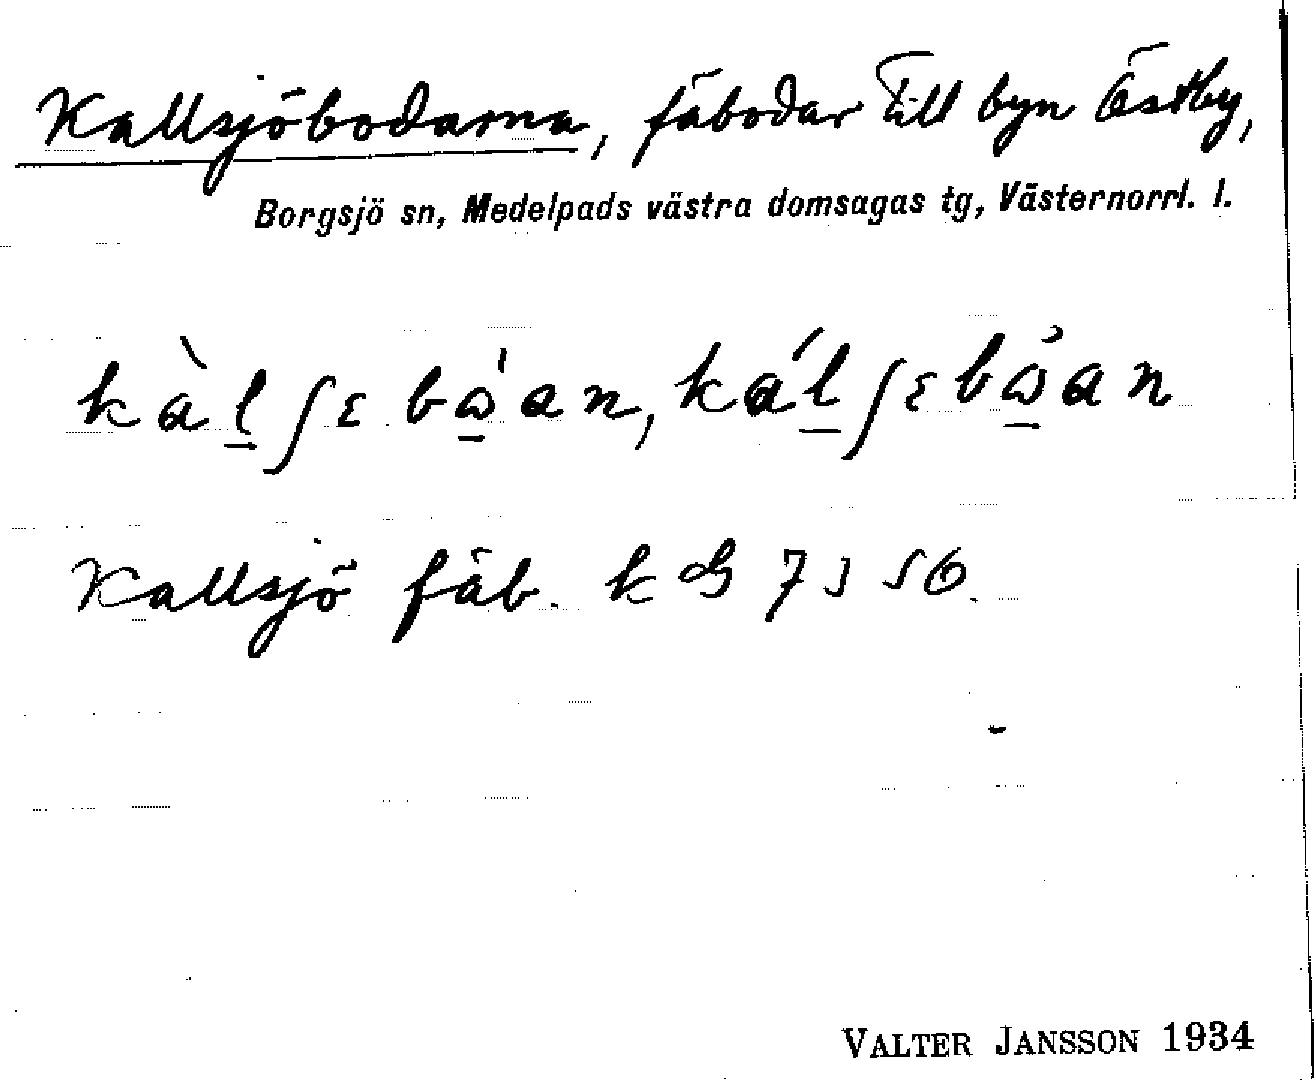 Kallsjöbodarna, fäbodar till byn Östby,
Borgsjö sn, Medelpads västra domsagas tg, Västernorrl. l.
kàl̠ʃɛbὼ̠an, kál̠ʃɛbω̠̉an
Kallsjö fäb. k
VALTER JANSSON 1934